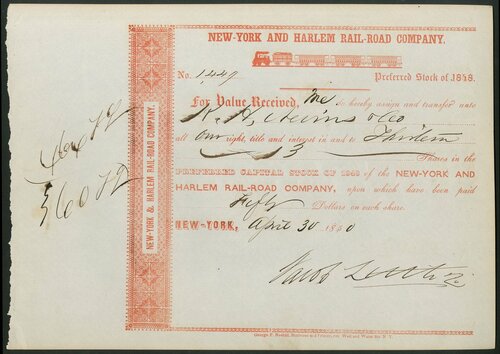 NEW-YORK AND HARLEM RAIL-ROAD COMPANY.
No. 1449 Preferred Stock of 1848.
For Value Received, We do hereby assign and transfer unto
R. H. & Co
all our right, title and interest in and to Thirteen
13 Shares in the
PREFERRED CAPITAL STOCK OF 1848 OF THE NEW-YORK AND
HARLEM RAIL-ROAD COMPANY, upon which have been paid
Fifty Dollars on each share.
NEW-YORK, April 30 1850
Jacob
NEW-YORK & HARLEM RAIL-ROAD COMPANY.